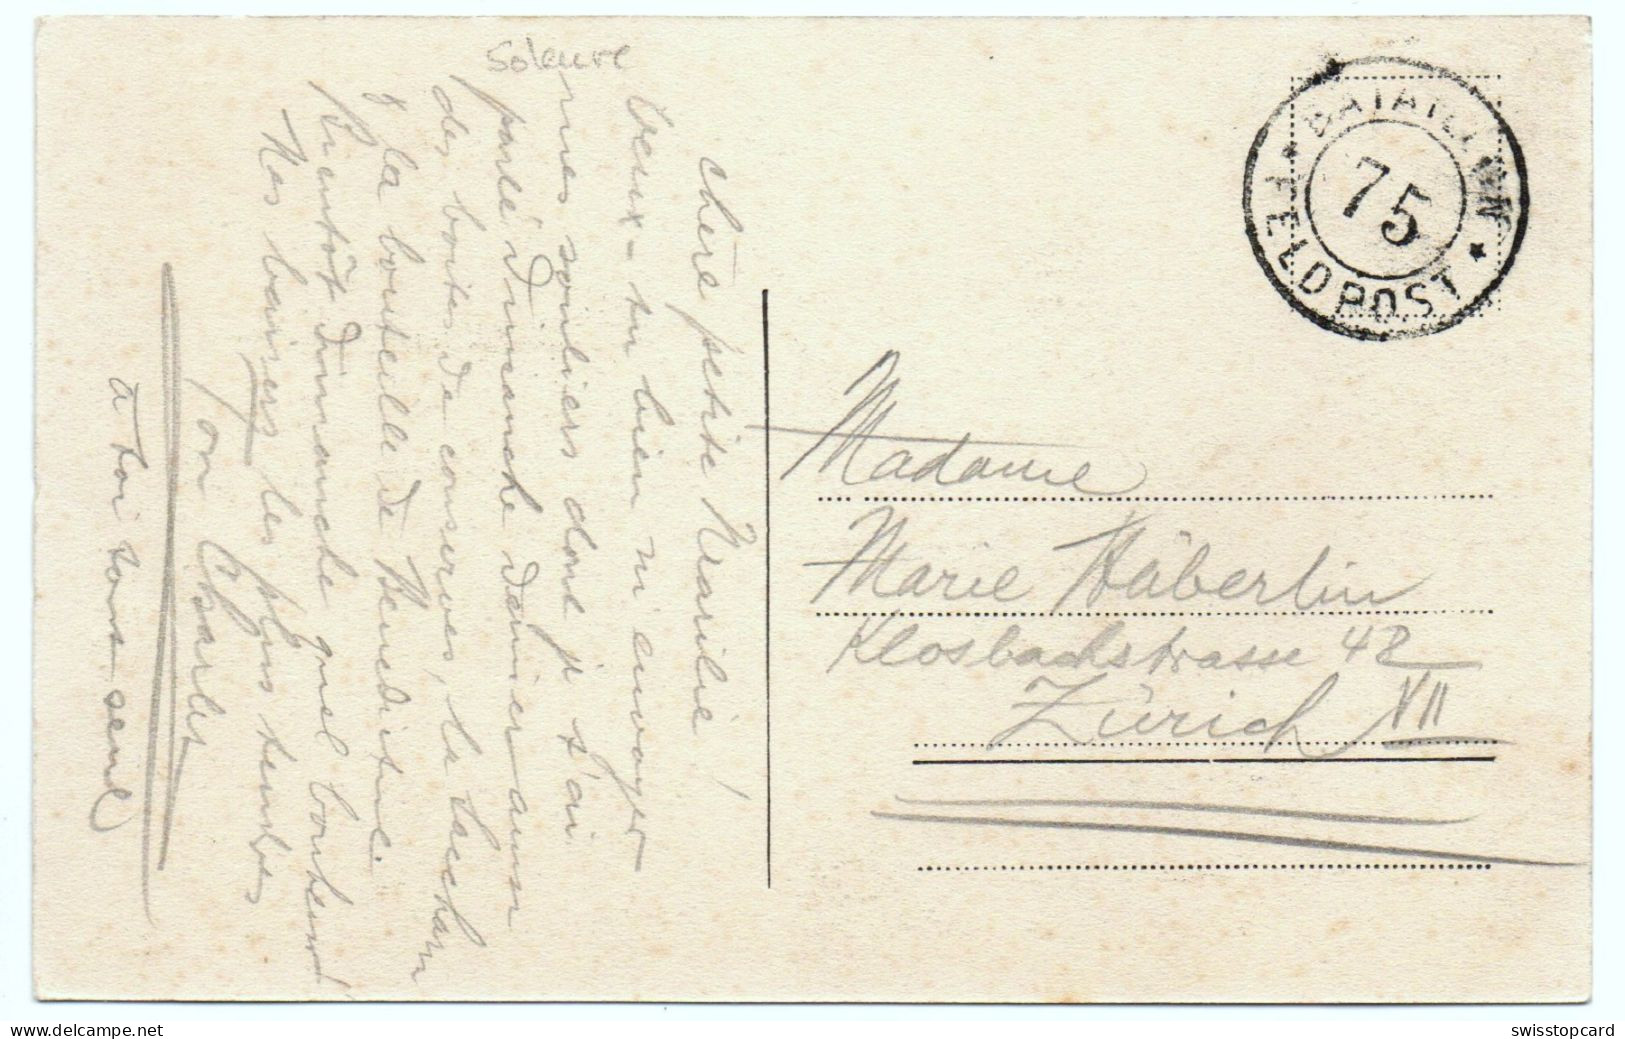 Soleure
chère petite Marulie!
Veux-tu bien m'envoyer
mes souliers dont je t'ai
parlé dimanche dernier aussi
des boites de conserves, le
& la bouteille de Benedictine.
Bientôt dimanche quel bonheur!
Mes baisers les plus tendres
Ton Charles
à toi toute seul
BATAILLON
75
* FELDPOST *
Madame
Marie Häberlin
Klosbachstrasse 42
Zürich VII
delcampe.net
swisstopcard